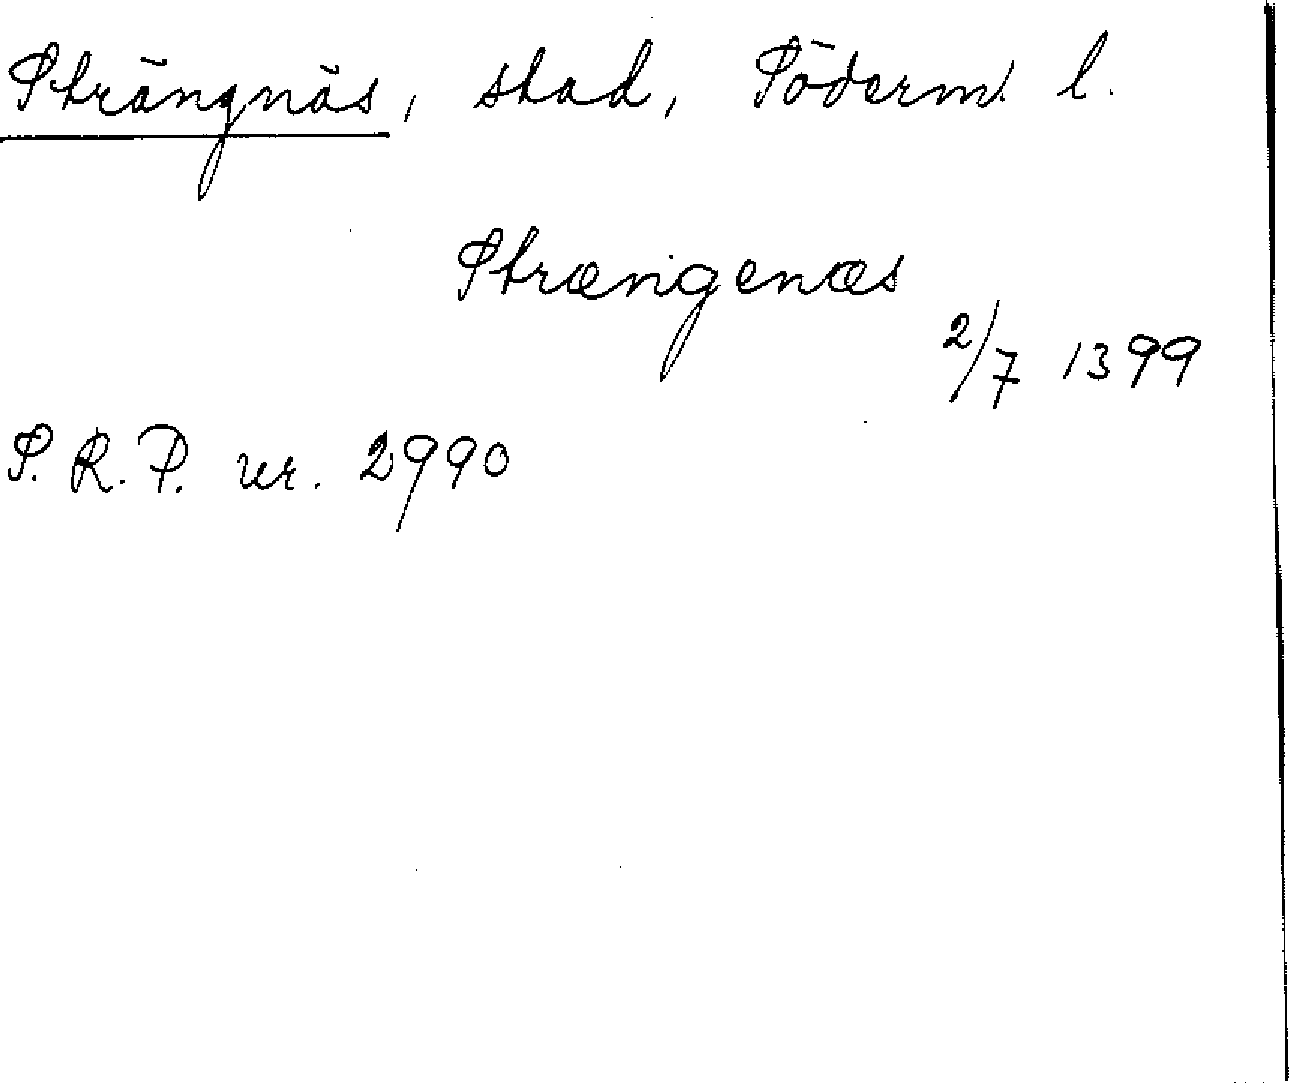 Strängnäs, stad, Söderm. l.
Strængenæs
2/7 1399
S. R. P. nr. 2990